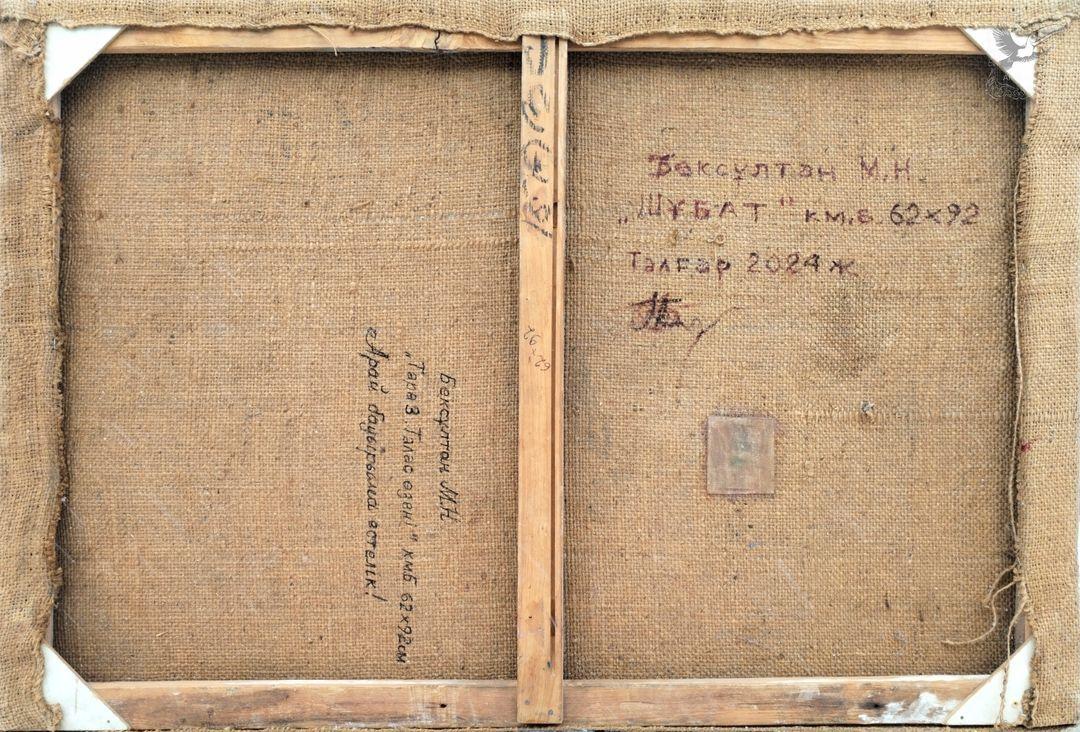 Бексұлтан М.Н.
„ШҰБАТ" км.б 62х92
Талғар 2024ж
Бексұлтан М.Н
„Тараз. Талас өзені" км.Б 62х92см
«Арай бауырыма естелік!
62х92